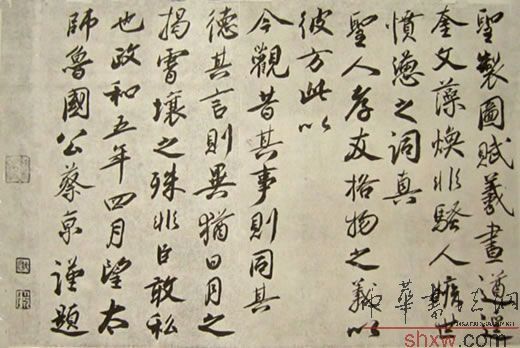 聖製圖賦羲畫
奎文藻煥非騷人曠世
憤懣之詞真
聖人孝友格物之義以
彼方此以
今觀昔其事則同其
德其言則異猶日月之
揭霄壤之殊非臣敢私
也政和五年四月望太
師魯國公蔡京謹題
shxw.com